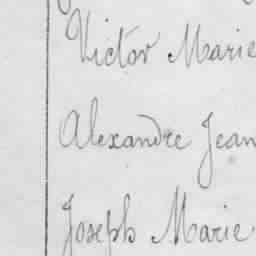 Victor Marie
Alexandre Jean
Joseph Marie